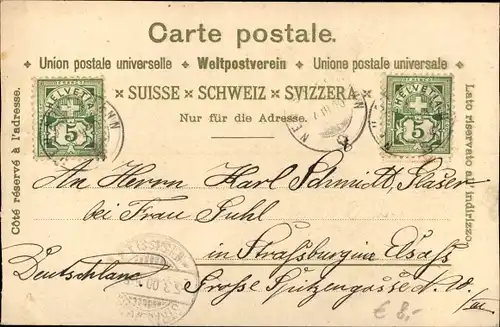 Carte postale.
✦ Union postale universelle ✦ Weltpostverein ✦ Unione postale universale ✦
× SUISSE × SCHWEIZ × SVIZZERA ×
Nur für die Adresse.
Côté réservé à l'adresse.
Lato riservato all' indirizzo.
HELVETIA
5
HELVETIA
5
An Herrn Karl Schmidt, Glaser
bei Frau Guhl
in Strassburg in Elsass
Deutschland Grosse Spitzengasse No.
€ 8,-